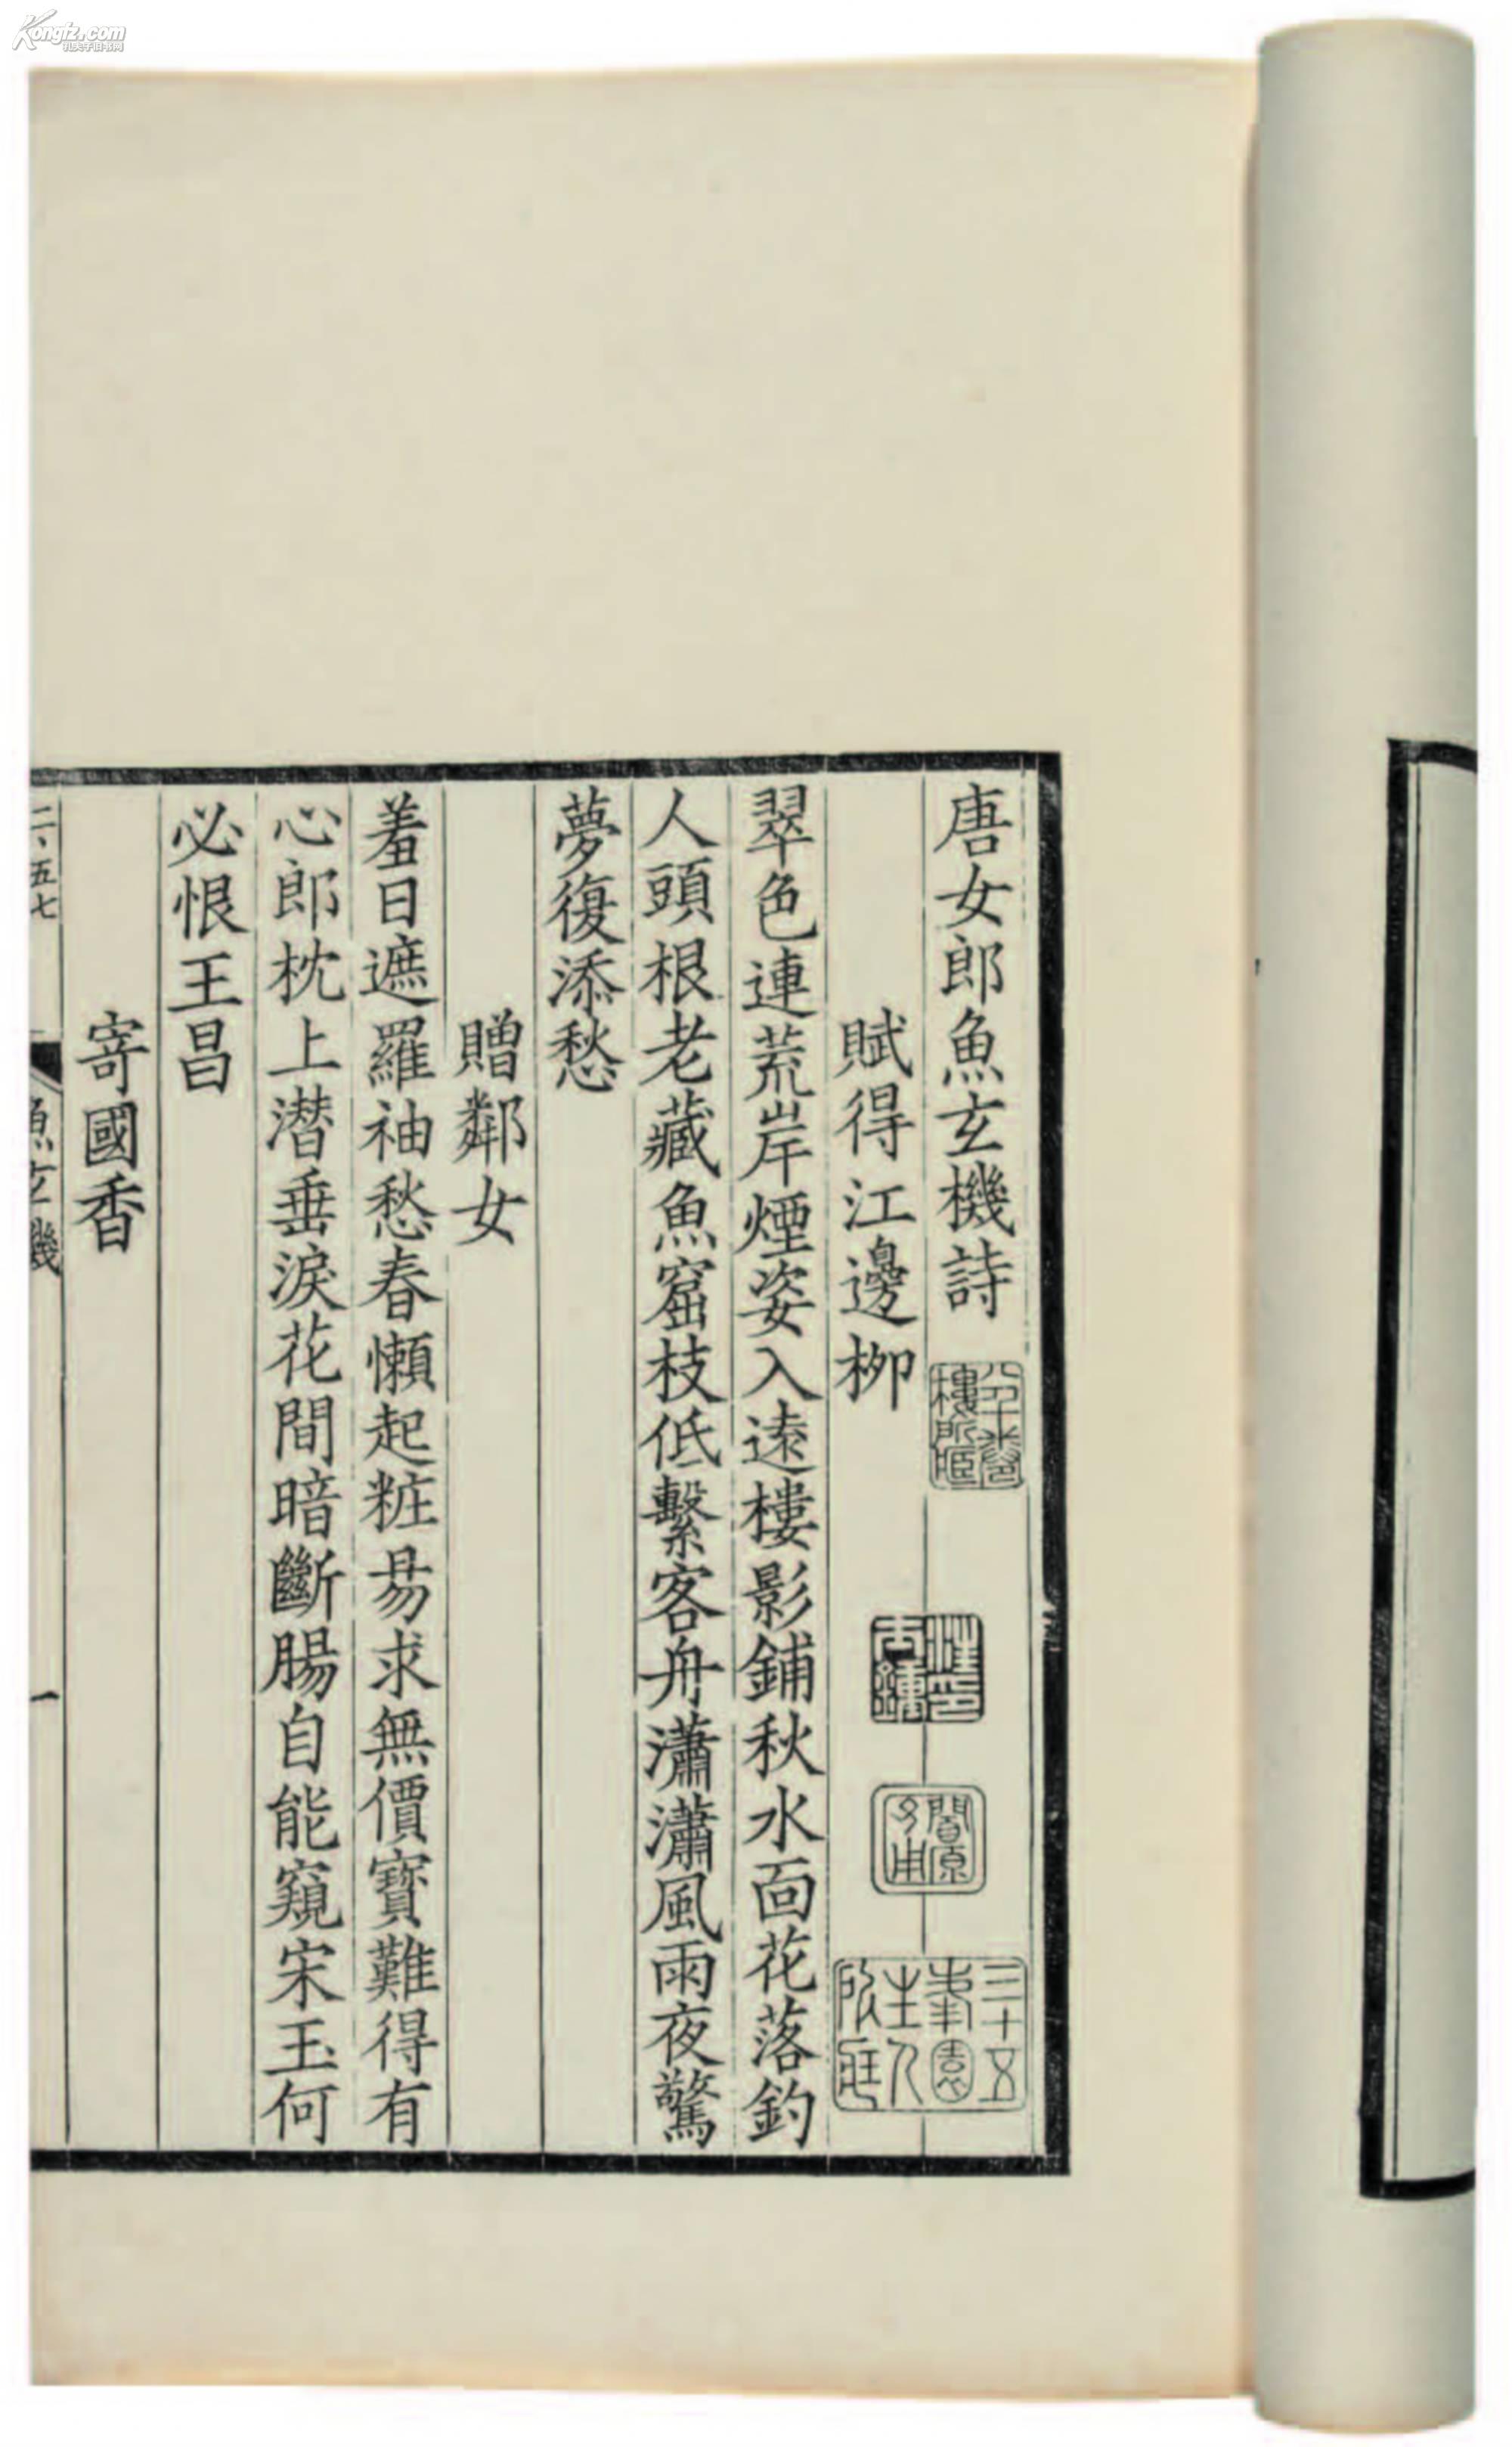 Kongfz.com
孔夫子旧书网
唐女郎魚玄機詩
賦得江邊柳
翠色連荒岸煙姿入遠樓影鋪秋水面花落釣
人頭根老藏魚窟枝低繫客舟瀟瀟風雨夜驚
夢復添愁
贈鄰女
羞日遮羅袖愁春懶起粧易求無價寶難得有
心郎枕上潛垂淚花間暗斷腸自能窺宋玉何
必恨王昌
寄國香
二、五七
魚玄機
一